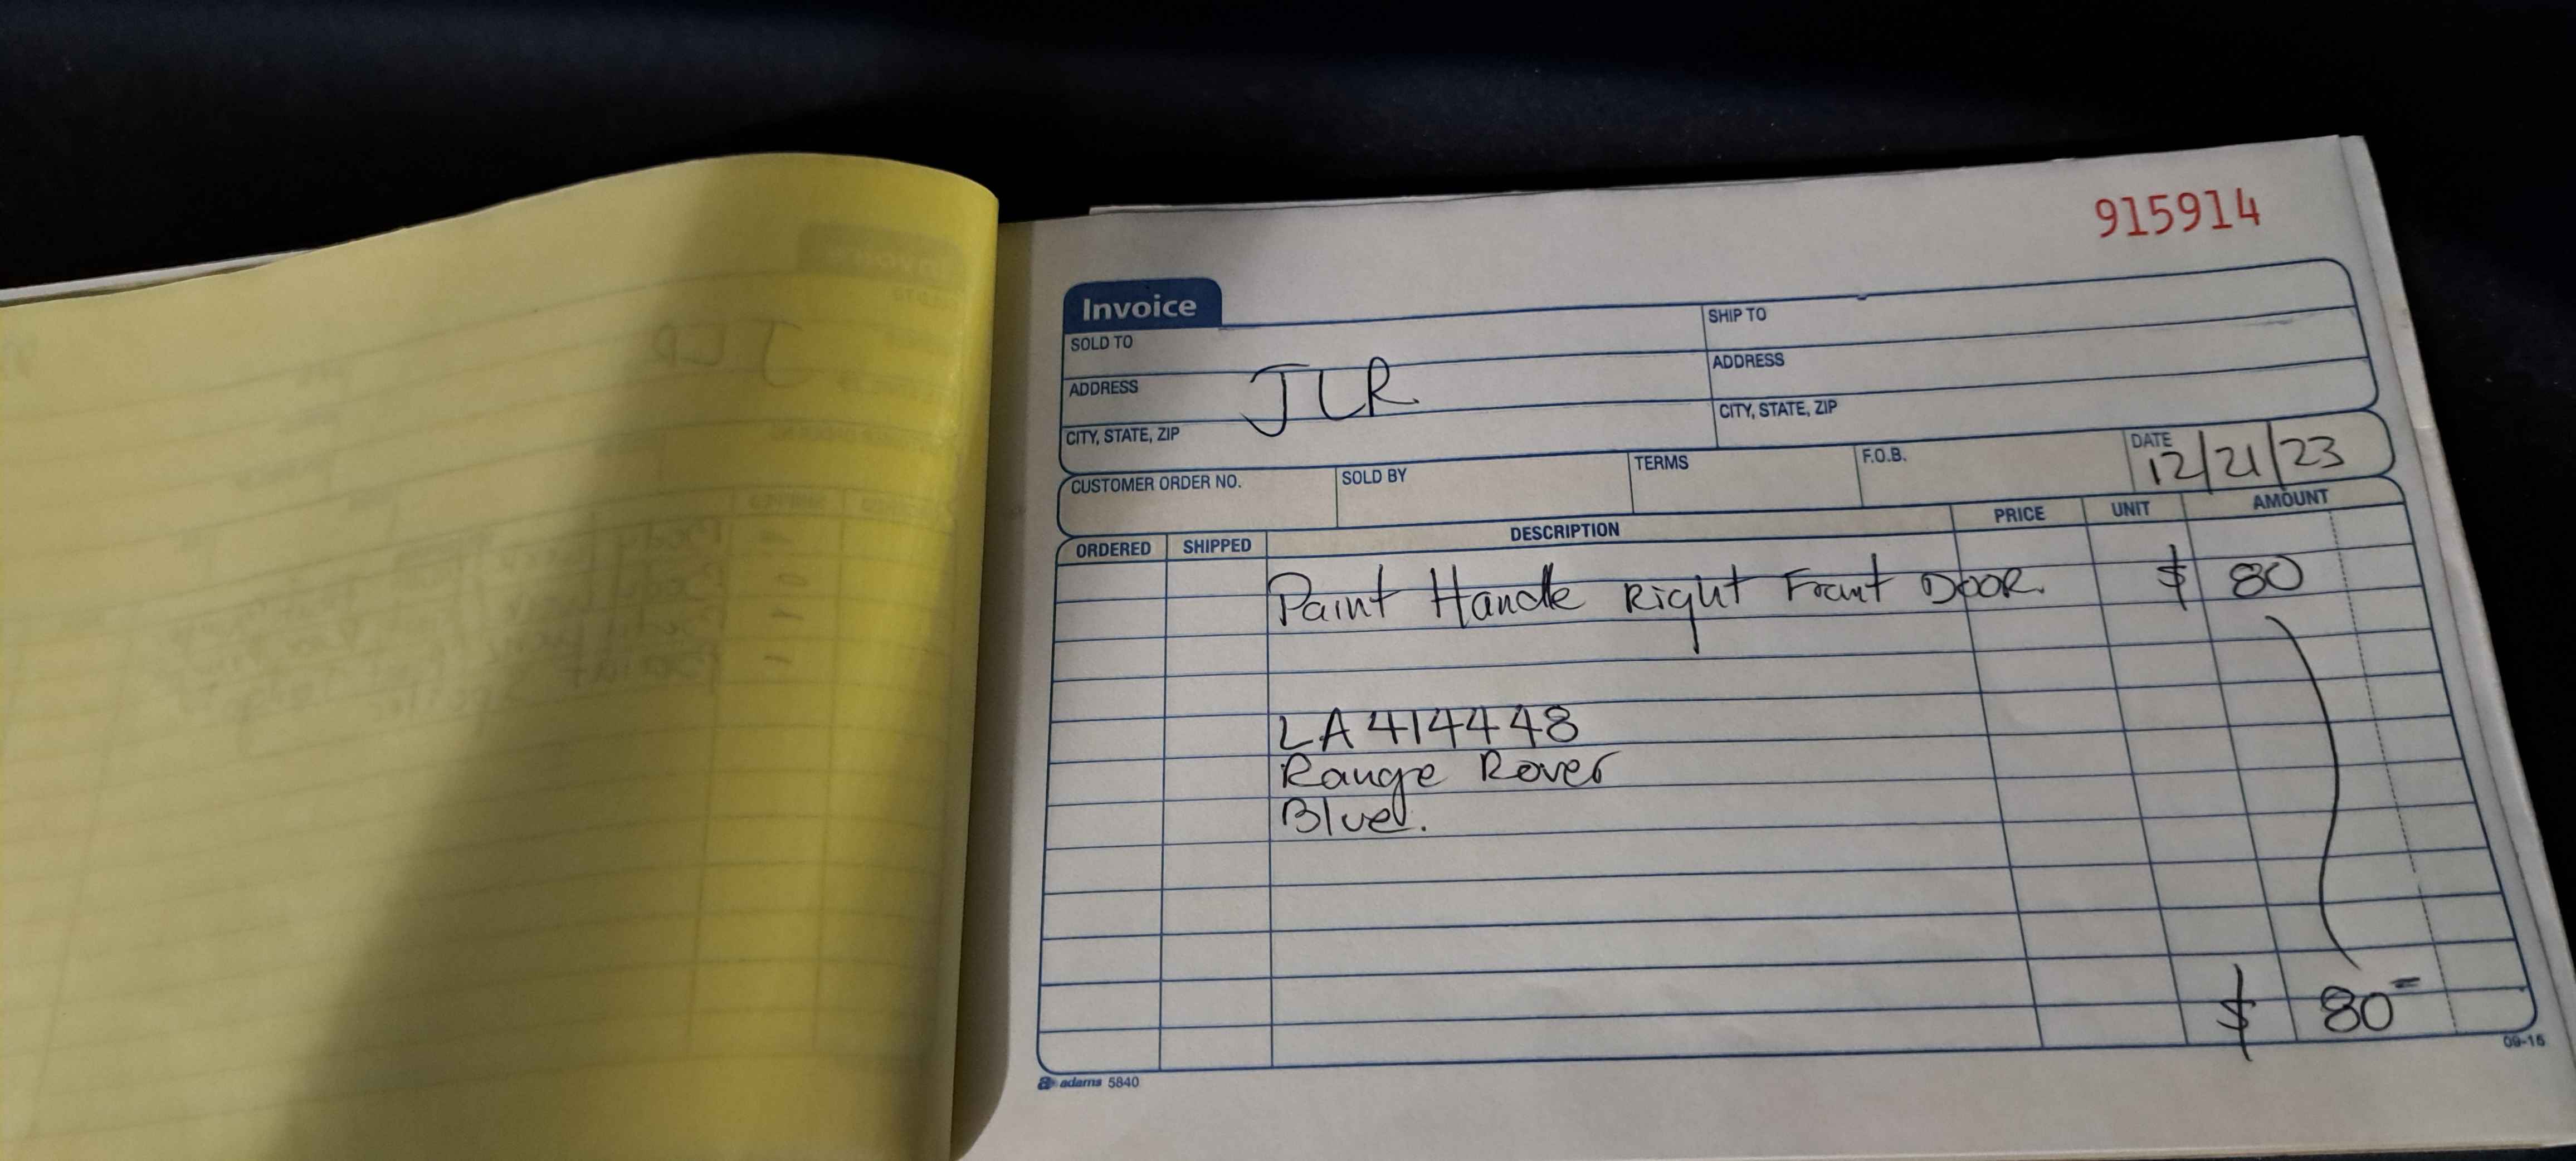 915914
Invoice
SOLD TO
SHIP TO
ADDRESS
JLR
ADDRESS
CITY, STATE, ZIP
CITY, STATE, ZIP
CUSTOMER ORDER NO. SOLD BY TERMS F.O.B. DATE
12/21/23
ORDERED SHIPPED DESCRIPTION PRICE UNIT AMOUNT
Paint Handle Right Front Door. $ 80
LA414448
Range Rover
Blue.
$ 80
adams 5840
09-15